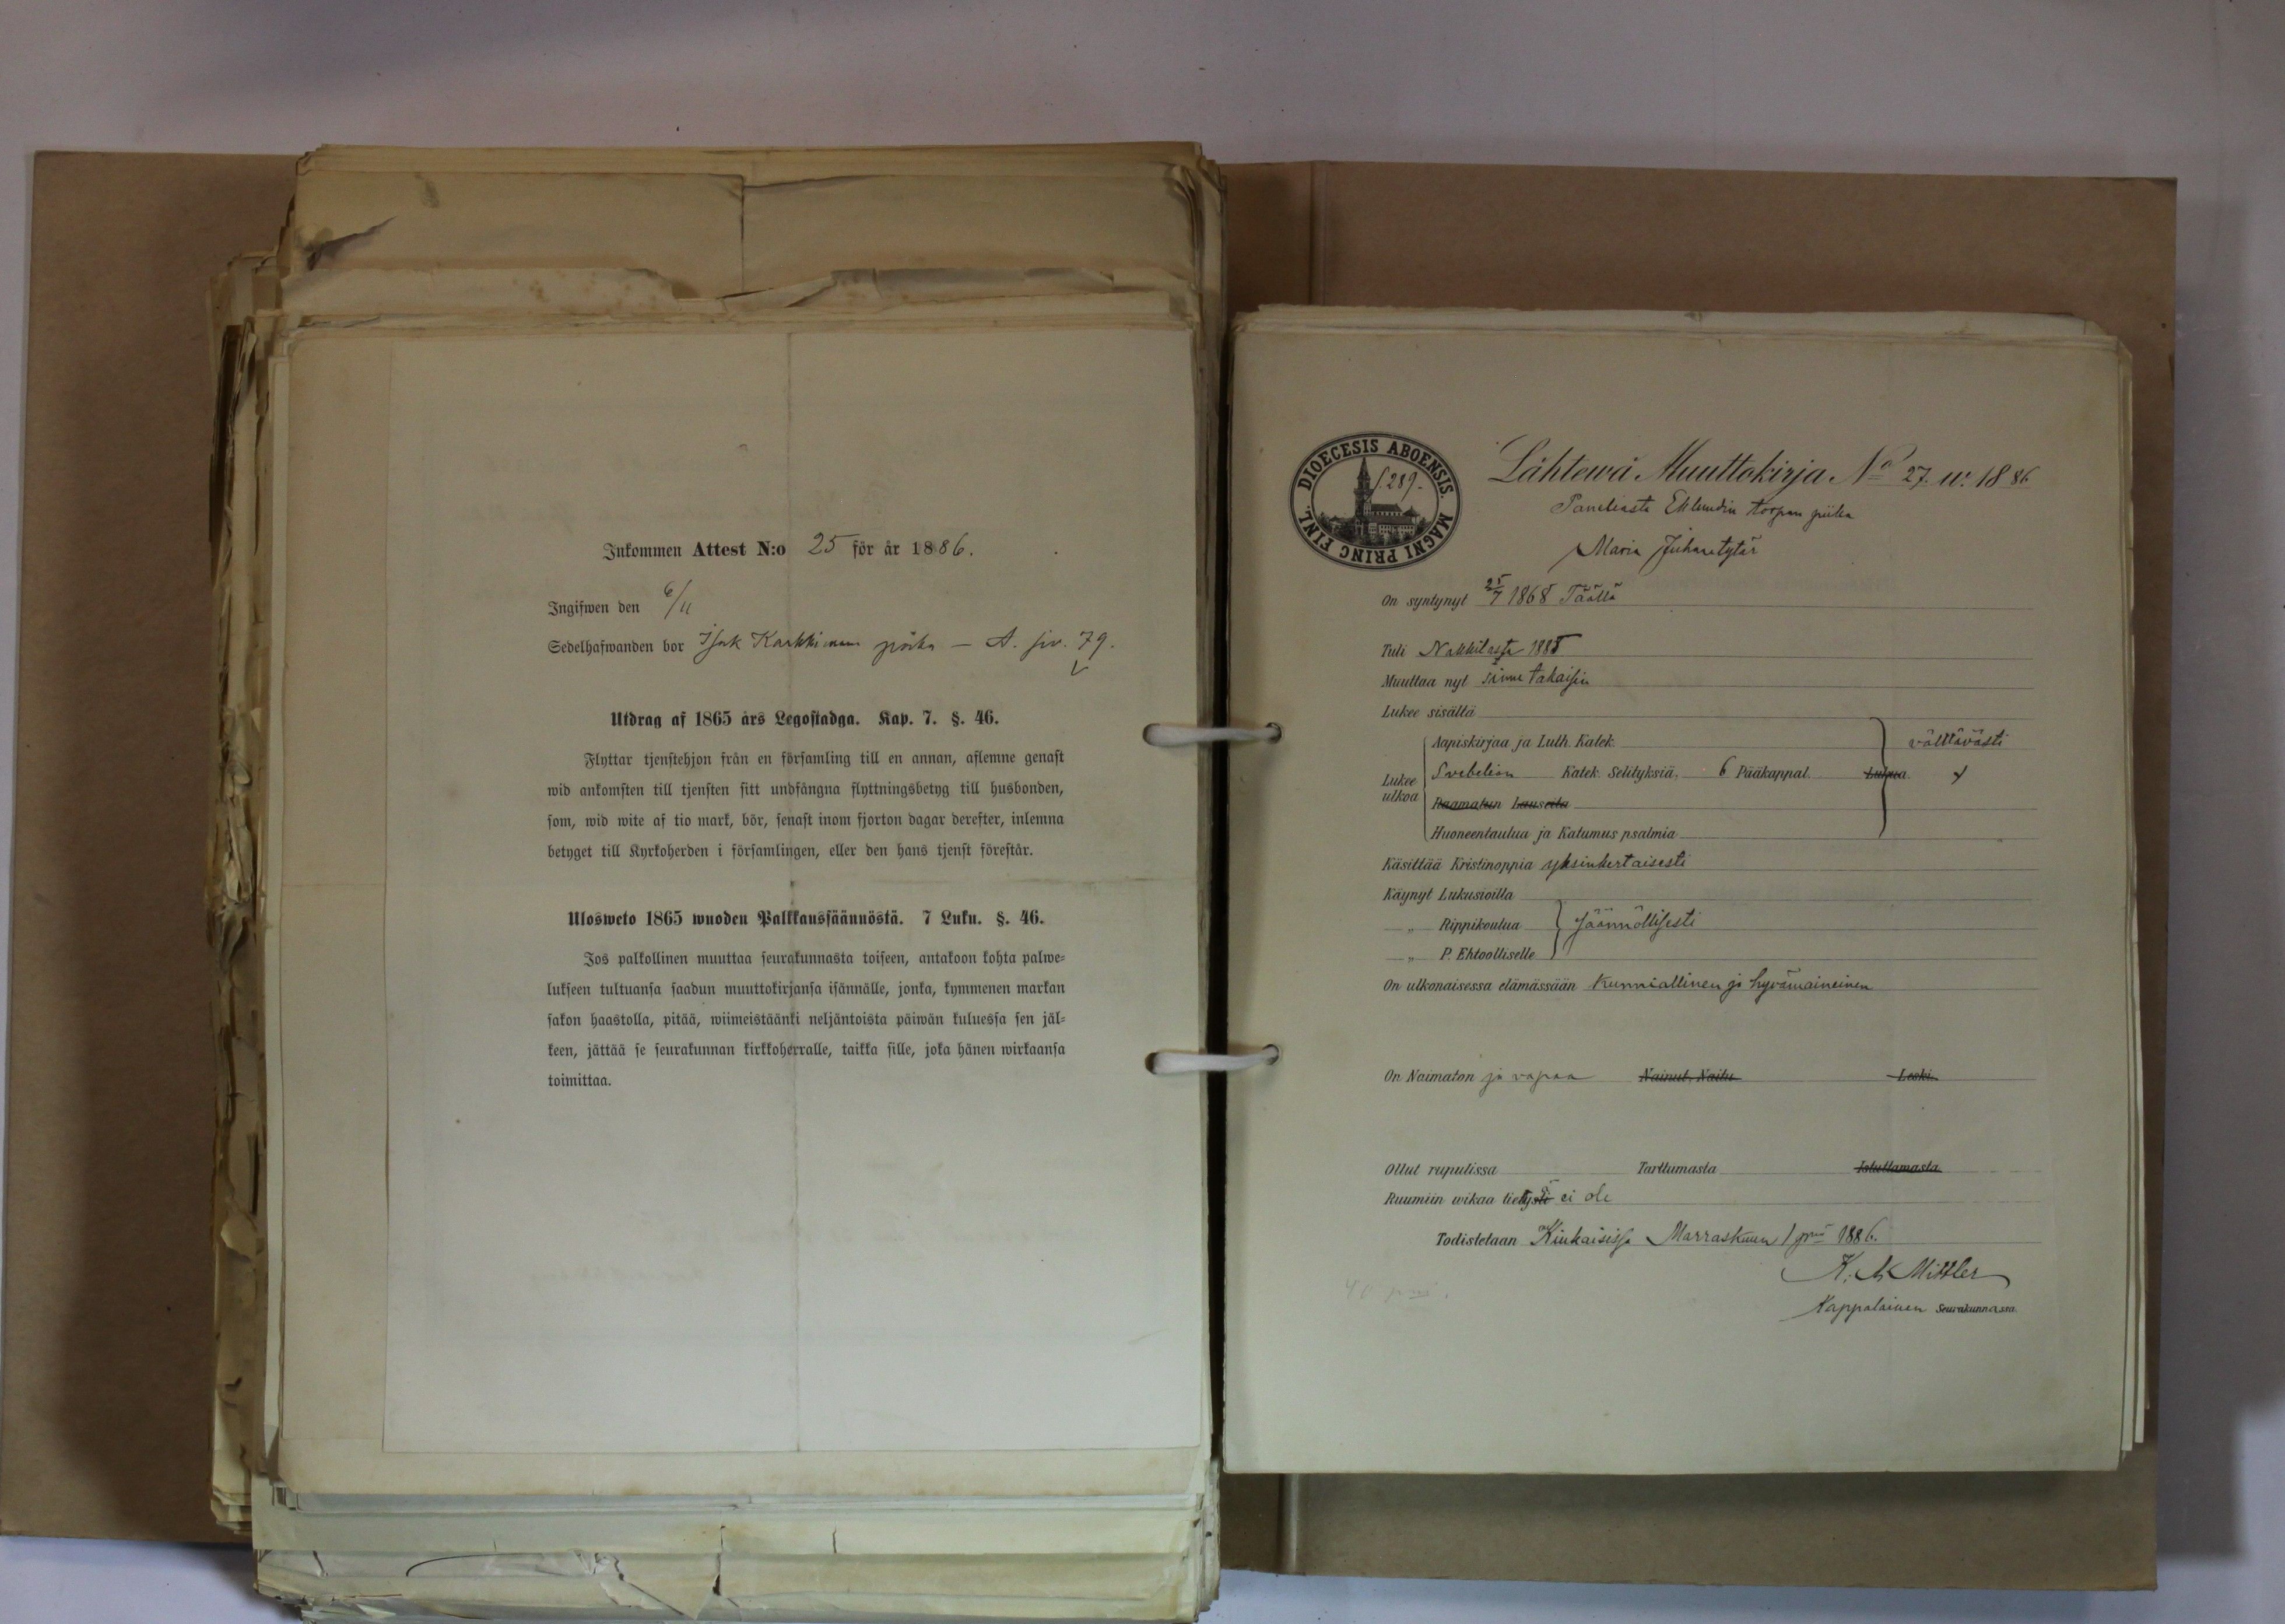 Inkommen Attest N:o 25 för år 1886.
Ingifwen den 6/11
Sedelhafwanden bor Isak Karkkimaan piika — A. siv. 79.
Utdrag af 1865 års Legostadga. Kap. 7. §. 46.
Flyttar tjenstehjon från en församling till en annan, aflemne genast
wid ankomsten till tjensten sitt undfångna flyttningsbetyg till husbonden,
som, wid wite af tio mark, bör, senast inom fjorton dagar derefter, inlemna
betyget till Kyrkoherden i församlingen, eller den hans tjenst förestår.
Ulosweto 1865 wuoden Palkkaussäännöstä. 7 Luku. §. 46.
Jos palkollinen muuttaa seurakunnasta toiseen, antakoon kohta palwe=
lukseen tultuansa saadun muuttokirjansa isännälle, jonka, kymmenen markan
sakon haastolla, pitää, wiimeistäänki neljäntoista päiwän kuluessa sen jäl=
keen, jättää se seurakunnan kirkkoherralle, taikka sille, joka hänen wirkaansa
toimittaa.
DIOECESIS ABOENSIS. MAGNI PRINC FINL.
S. 289.
Lähtewä Muuttokirja No 27. w. 1886
Paneliasta Eklundin torpan piika
Maria Juhantytär
On syntynyt 25/7 1868 Täällä
Tuli Nakkilasta 1885
Muuttaa nyt sinne takaisin
Lukee sisältä
Aapiskirjaa ja Luth. Katek. välttävästi
Lukee ulkoa
Svebelion Katek. Selityksiä, 6 Pääkappal. Lukua
Raamatun Lauseita
Huoneentaulua ja Katumus psalmia
Käsittää Kristinoppia yksinkertaisesti
Käynyt Lukusioilla
„ Rippikoulua säännöllisesti
„ P. Ehtoolliselle
On ulkonaisessa elämässään kunniallinen ja hyvämaineinen
On Naimaton ja vapaa Nainut, Naitu Leski.
Ollut rupulissa Tarttumasta Istuttamasta
Ruumiin wikaa tiettyä ei ole
Todistetaan Kiukaisissa Marraskuun 1 pnä 1886.
K. A. Mittler
Kappalainen Seurakunnassa.